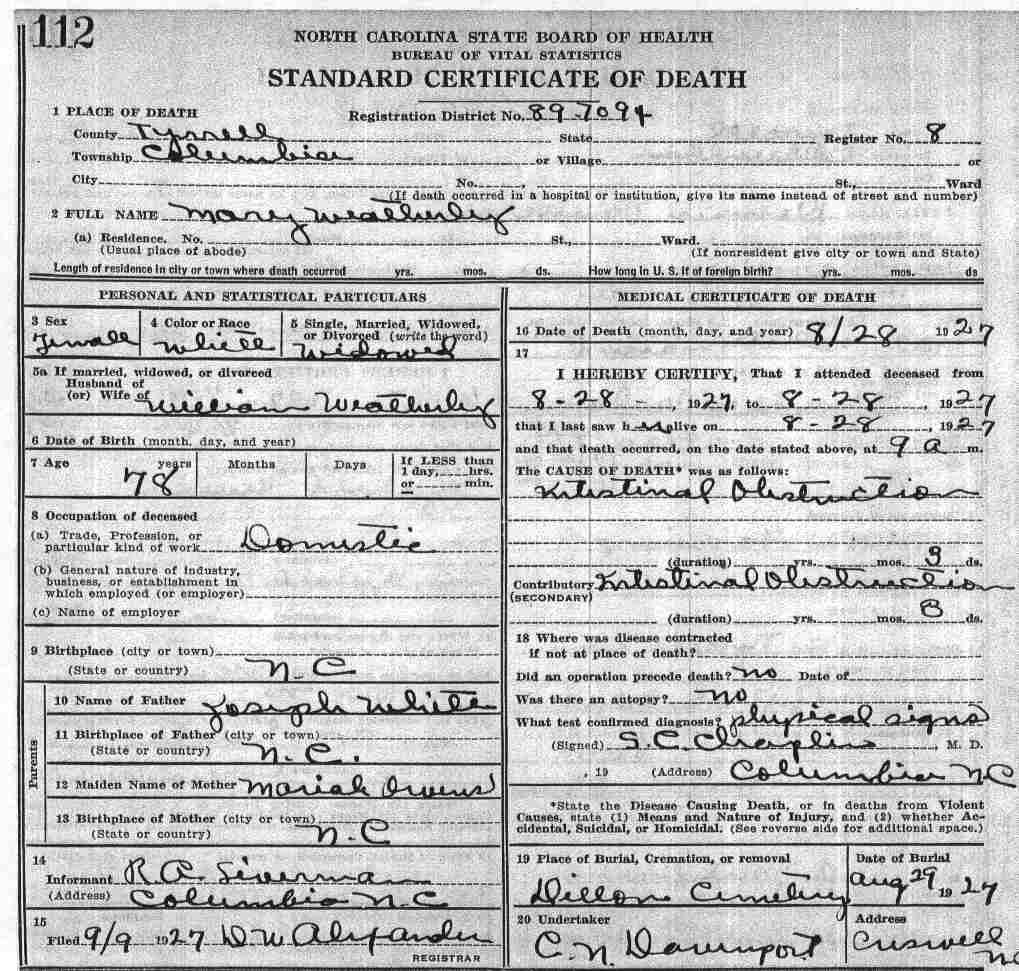 112
NORTH CAROLINA STATE BOARD OF HEALTH
BUREAU OF VITAL STATISTICS
STANDARD CERTIFICATE OF DEATH
1 PLACE OF DEATH Registration District No. 89-7094
County Tyrrell State Register No. 8
Township Columbia or Village or
City No. , St., Ward
(If death occurred in a hospital or institution, give its name instead of street and number)
2 FULL NAME Mary Weatherley
(a) Residence. No. St., Ward.
(Usual place of abode) (If nonresident give city or town and State)
Length of residence in city or town where death occurred yrs. mos. ds. How long in U. S. if of foreign birth? yrs. mos. ds
PERSONAL AND STATISTICAL PARTICULARS
3 Sex
Female
4 Color or Race
White
5 Single, Married, Widowed,
or Divorced (write the word)
Widowed
5a If married, widowed, or divorced
Husband of
(or) Wife of William Weatherley
6 Date of Birth (month, day, and year)
7 Age years Months Days If LESS than
1 day, hrs.
or min.
78
8 Occupation of deceased
(a) Trade, Profession, or
particular kind of work Domestic
(b) General nature of industry,
business, or establishment in
which employed (or employer)
(c) Name of employer
9 Birthplace (city or town)
(State or country) N. C
Parents
10 Name of Father Joseph White
11 Birthplace of Father (city or town)
(State or country) N. C.
12 Maiden Name of Mother Mariah Owens
13 Birthplace of Mother (city or town)
(State or country) N. C
14
Informant R. A. Siverman
(Address) Columbia N. C
15
Filed 9/9 1927 D W Alexander
REGISTRAR
MEDICAL CERTIFICATE OF DEATH
16 Date of Death (month, day, and year) 8/28 1927
17
I HEREBY CERTIFY, That I attended deceased from
8-28- , 1927, to 8-28 , 1927
that I last saw h alive on 8-28 , 1927
and that death occurred, on the date stated above, at 9 a m.
The CAUSE OF DEATH* was as follows:
Intestinal Obstruction
(duration) yrs. mos. 3 ds.
Contributory Intestinal Obstruction
(SECONDARY)
(duration) yrs. mos. ds.
18 Where was disease contracted
if not at place of death?
Did an operation precede death? no Date of
Was there an autopsy? no
What test confirmed diagnosis? physical signs
(Signed) S. C. Chaplin , M. D.
, 19 (Address) Columbia N C
*State the Disease Causing Death, or in deaths from Violent
Causes, state (1) Means and Nature of Injury, and (2) whether Ac-
cidental, Suicidal, or Homicidal. (See reverse side for additional space.)
19 Place of Burial, Cremation, or removal
Dillon Cemetery
Date of Burial
Aug 29 1927
20 Undertaker
C. N. Davenport
Address
Creswell
NC